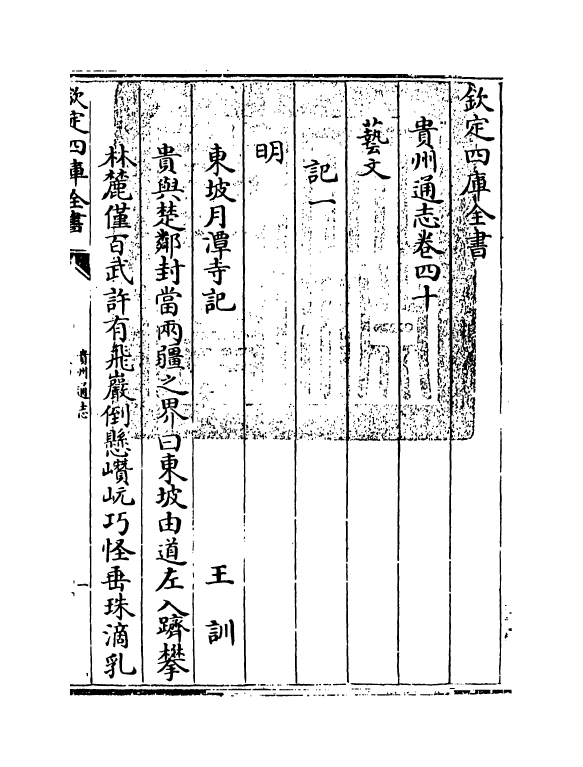 欽定四庫全書
貴州通志卷四十
藝文
記一
明
東坡月潭寺記 王訓
貴與楚鄰封當兩疆之界曰東坡由道左入躋攀
林麓僅百武許有飛巖倒懸巑岏巧怪垂珠滴乳
欽定四庫全書
貴州通志
一